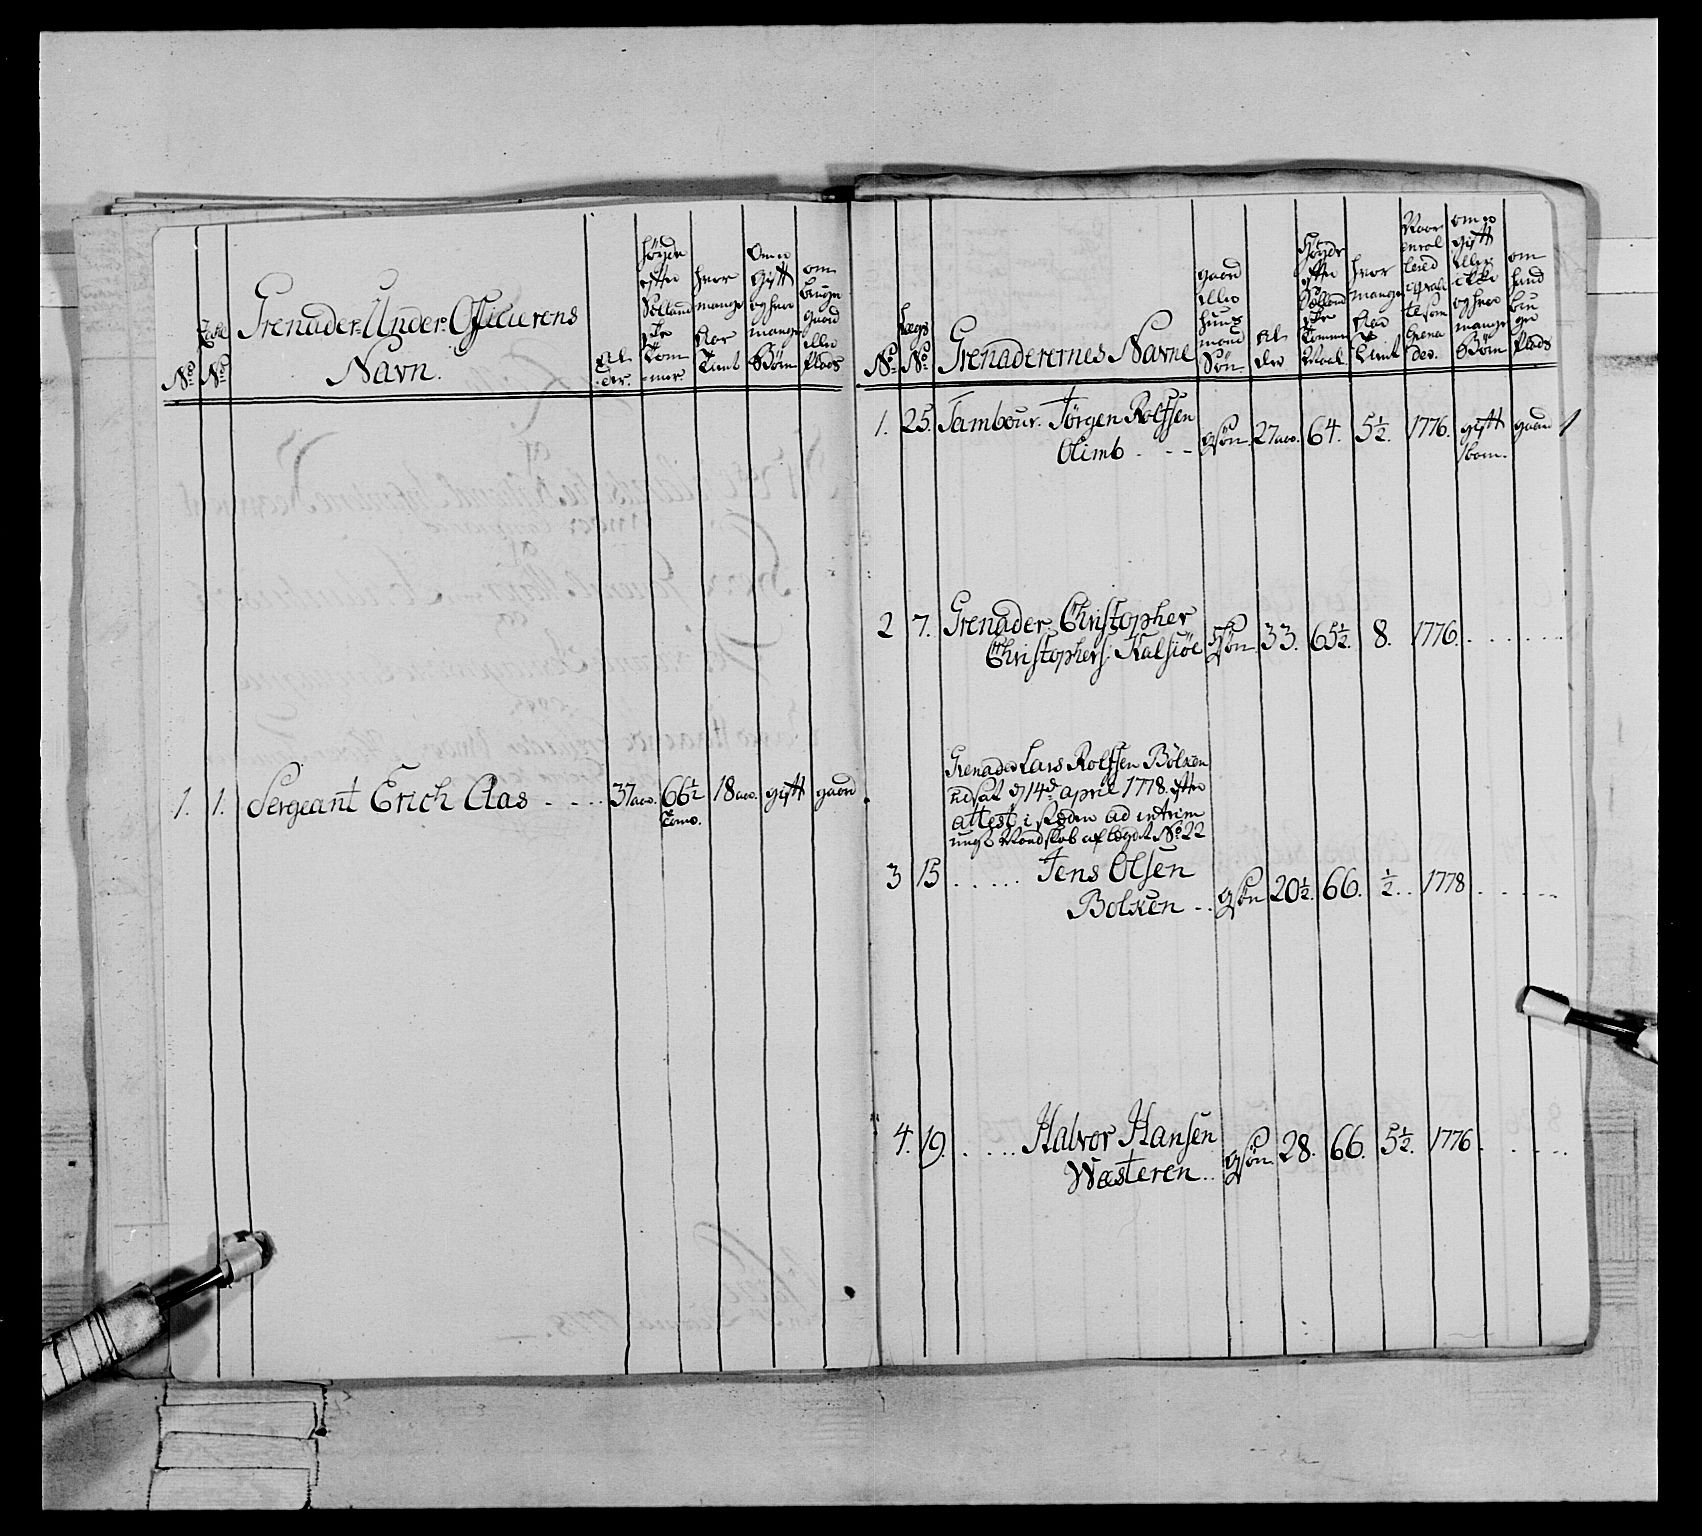 No
No
Grenader-Under-Officerens
Navn.
Al-
der.
høyde
efter
Sölland
ske
Tom-
mer.
hvor
mange
Aar
Tient
Om
gift
og hvor
mange
Börn
om
bruger
gaard
eller
Plads
1. 1. Sergeant Erich Aas - - - - 37 66½ 18 gift gaard
No
Lægs
No
Grenaderernes Navne
gaard
eller
huus
mand
Sön
Al-
der
Höyde
efter
Sölland
ske
Tommer
Maal
hvor
mange
Aar
Tient
Naar
enrol
lered
som
Grena
der.
om
gift
eller
ikke
og hvor
mange
Börn
om
hand
bru
ger
Plads
1. 25. Tambour. Jörgen Rolfsen
Olimb - - - gsön. 27 64. 5½. 1776. gift gaard 1
2 7. Grenader Christopher
Christophers: Kalsiöe sön 33. 65½. 8. 1776.
Grenader Lars Rolfsen Bölxen
udsat d 14de april 1778. efter
attest i steden ad
af lægdet No 22
3 15 . . . . . Jens Olsen
Bolxen - - gsön 20½. 66. ½. . 1778
4. 19. . . . . . Halvor Hansen
Wæsteren. . gsön 28. 66. 5½. 1776